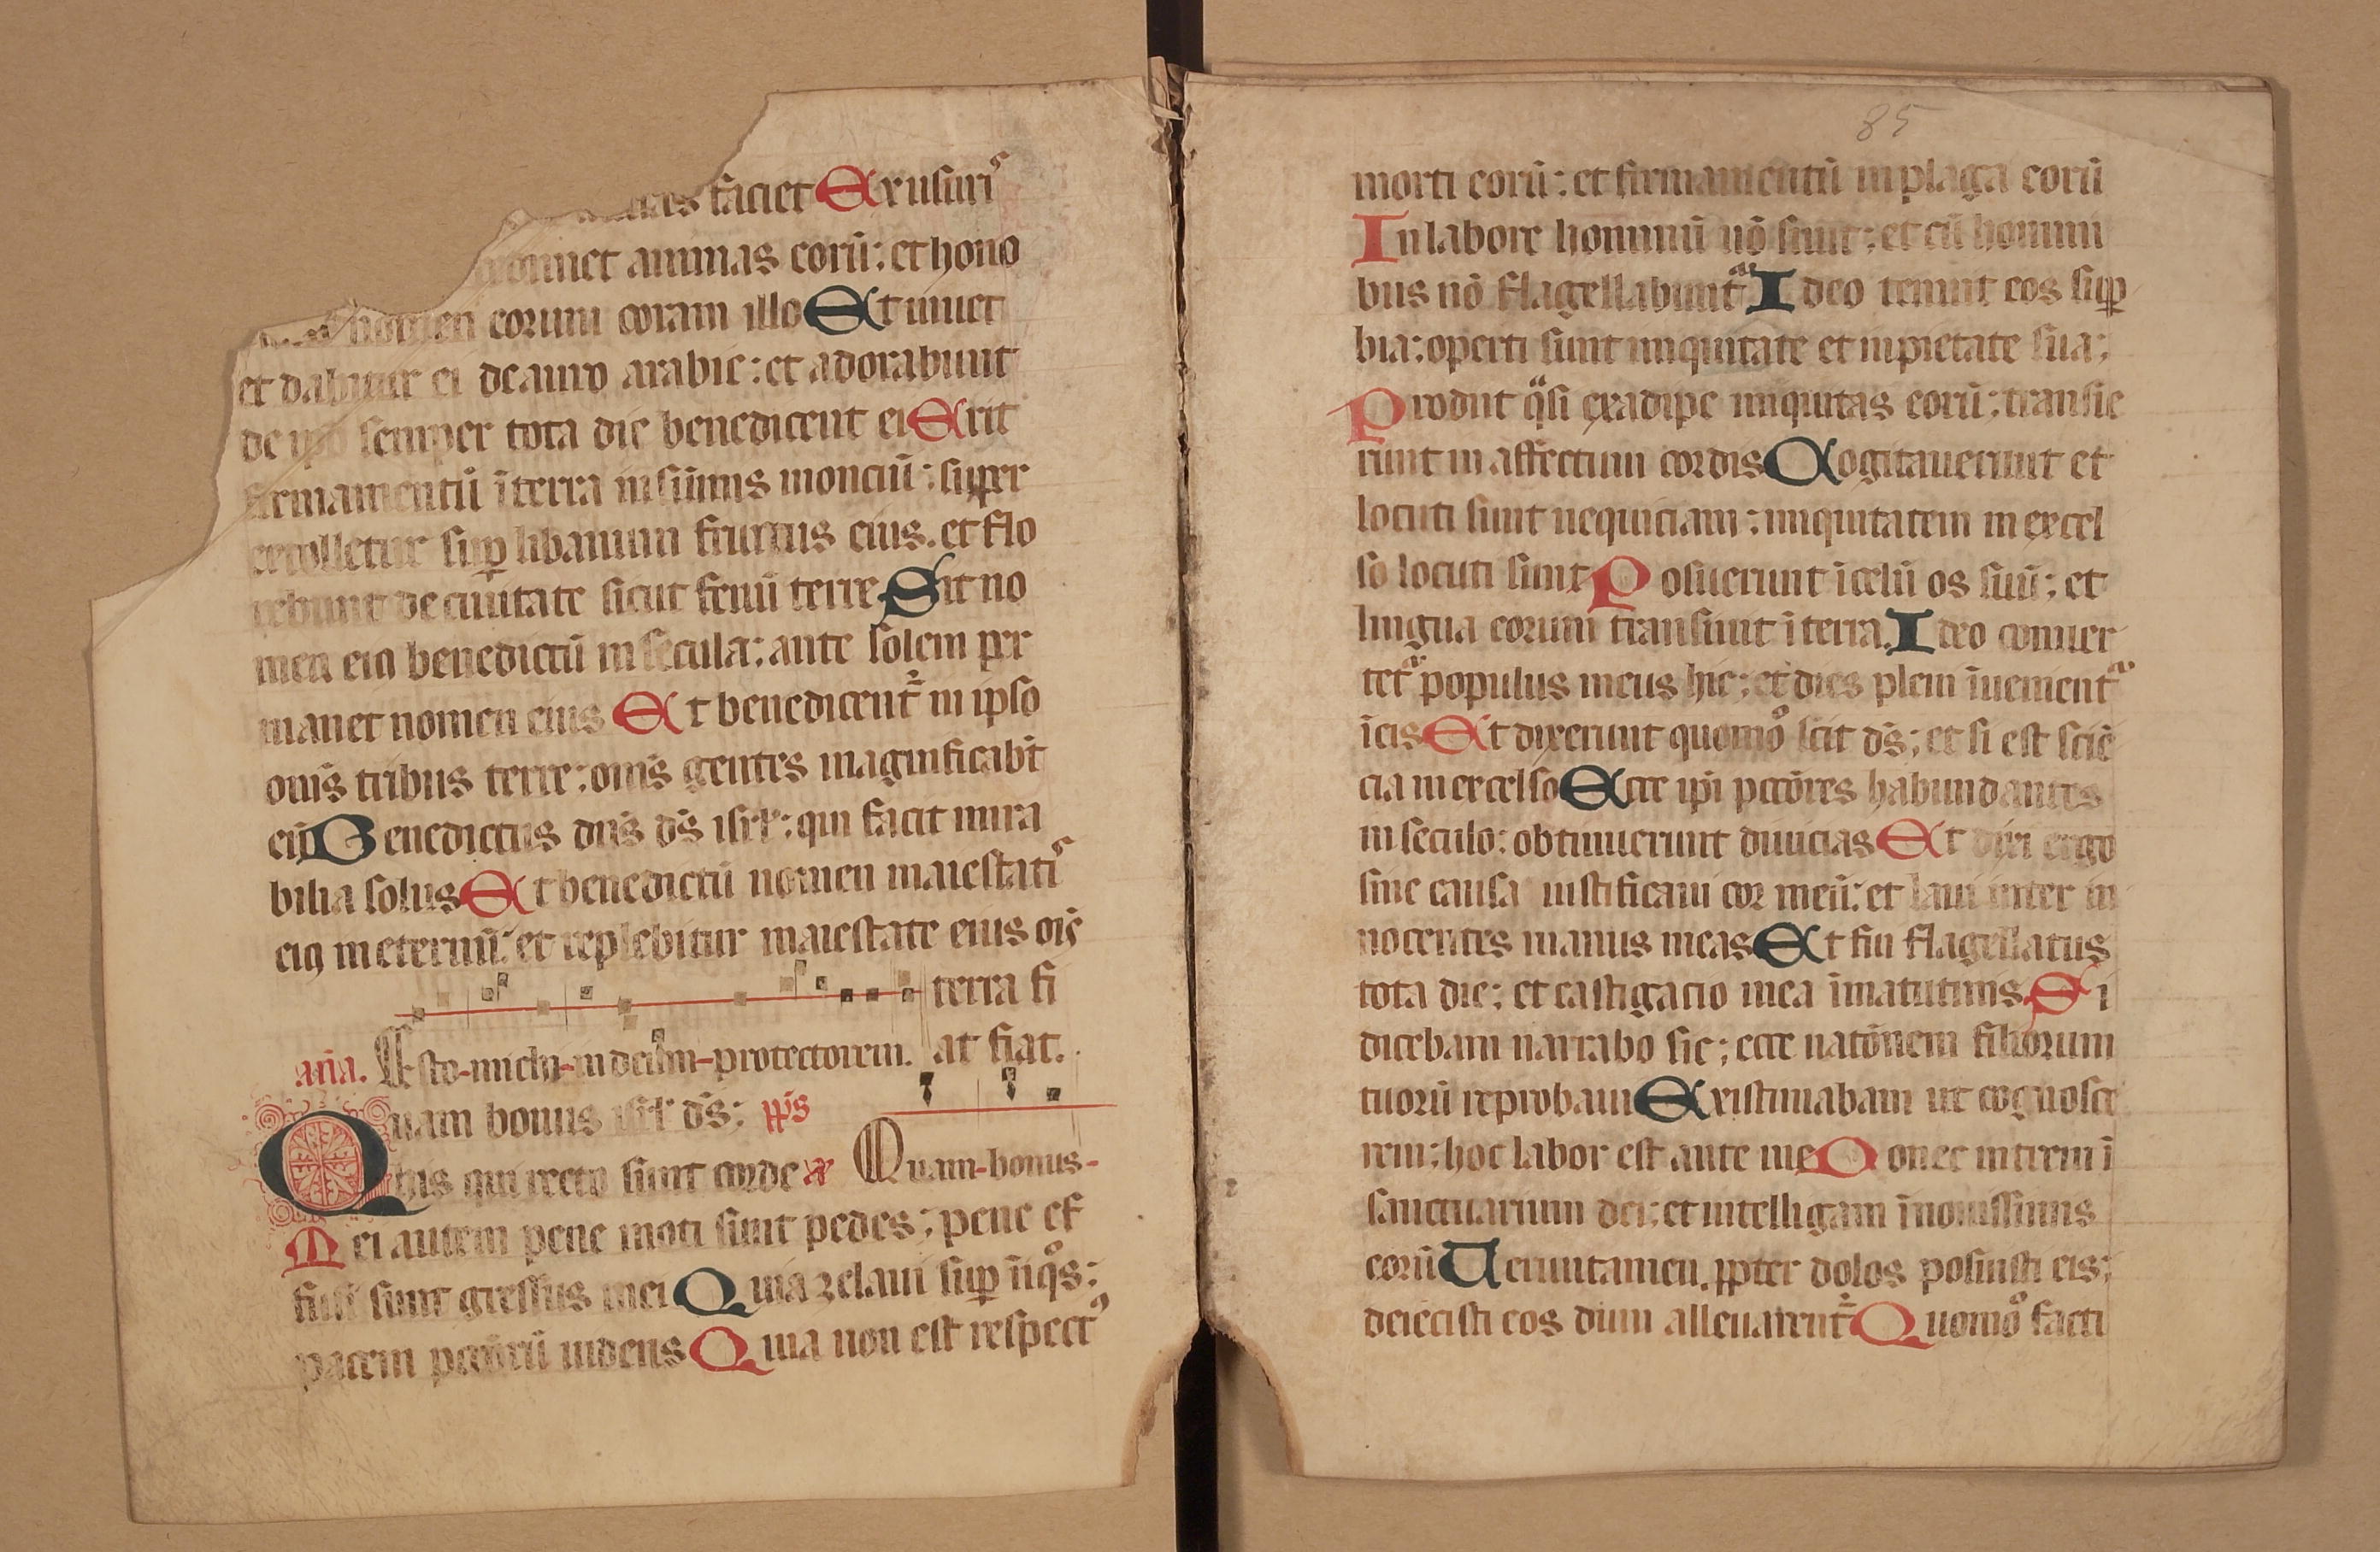 faciet Ex usuri᷒
animas eorū: et hono
nomen eorum coram illo Et uiuet
et dabitur ei de auro arabie: et adorabunt
de ipo semper tota die benedicent ei Erit
firmamentū ī terra in sūmis monciū: super
extolletur sup̱ libanum fructus eius. et flo
rebunt de ciuitate sicut fenū terre Sit no
men eiꝰ benedictū in secula: ante solem per
manet nomen eius Et benedicent᷑ in ipso
om̄s tribus terre: om̄s gentes magnificabt̄
eū Benedictus dn̄s ds̄ isrl: qui facit mira
bilia solus Et benedictū nomen maiestati᷒
eiꝰ in eternū: et replebitur maiestate eius oīs
terra fi
aīa. Esto-michi-in deum-protectorem. at fiat.
Quam bonus isrl ds̄: pp̄s
hiis qui recto sunt corde a Quam-bonus-
Mei autem pene moti sunt pedes: pene ef
fusi sunt gressus mei Quia zelaui sup̱ īiqͦs:
pacem pctōrū uidens Quia non est respectꝰ
85
morti eorū: et firmamentū in plaga eorū
In labore hominū nō sunt: et cū homini
bus nō flagellabunt᷑ Ideo tenuit eos sup̱
bia: operti sunt iniquitate et inpietate sua:
Prodiit q̈si ex adipe iniquitas eorū: transie
runt in affectum cordis Cogitauerunt et
locuti sunt nequiciam: iniquitatem in excel
so locuti sunt Posuerunt ī celū os suū: et
lingua eorum transiuit ī terra. Ideo conuer
tet᷑ populus meus hic: et dies pleni īuenient᷑
ī eis Et dixerunt quomoͦ scit ds̄: et si est sciē
cia in excelso Ecce ip̄i pctōres habundantes
in seculo: obtinuerunt diuicias Et dixi ergo
sine causa iustificaui cor meū: et laui inter in
nocentes manus meas Et fui flagellatus
tota die: et castigacio mea ī matutinis Si
dicebam narrabo sic: ecce natōnem filiorum
tuorū reprobaui Existimabam ut cognosce
rem: hoc labor est ante me Donec intrem ī
sanctuarium dei: et intelligam ī nouissimis
eorū Ueruntamen ꝓpter dolos posuisti eis:
deiecisti eos dum alleuarent᷑ Quomoͦ facti